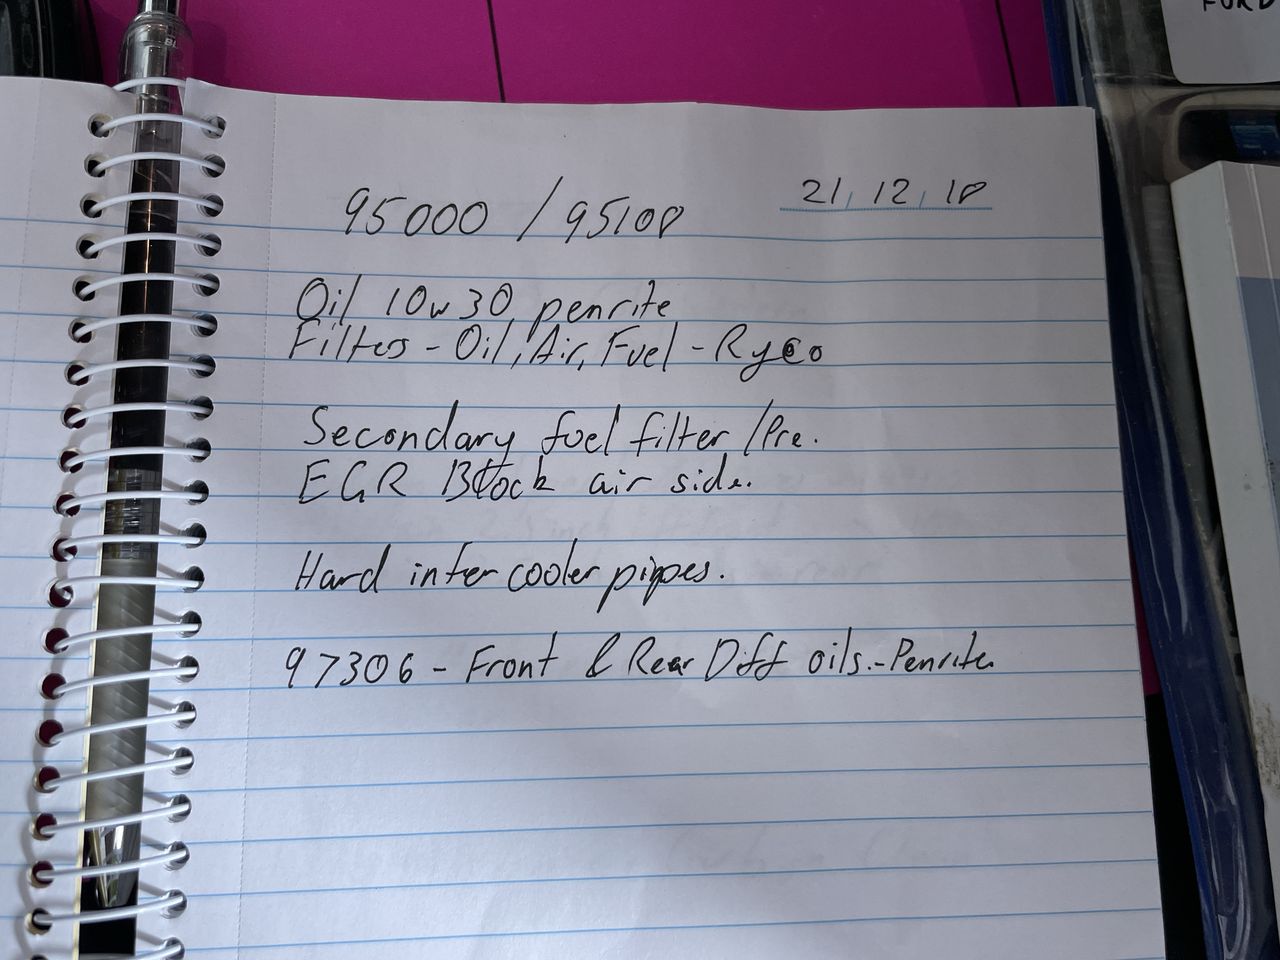 FORD
21/12/18
95000 / 95108
Oil 10w30 penrite
Filters - Oil, Air, Fuel - Ryco
Secondary fuel filter /Pre.
EGR Block air side.
Hard inter cooler pipes.
97306 - Front & Rear Diff oils. - Penrite